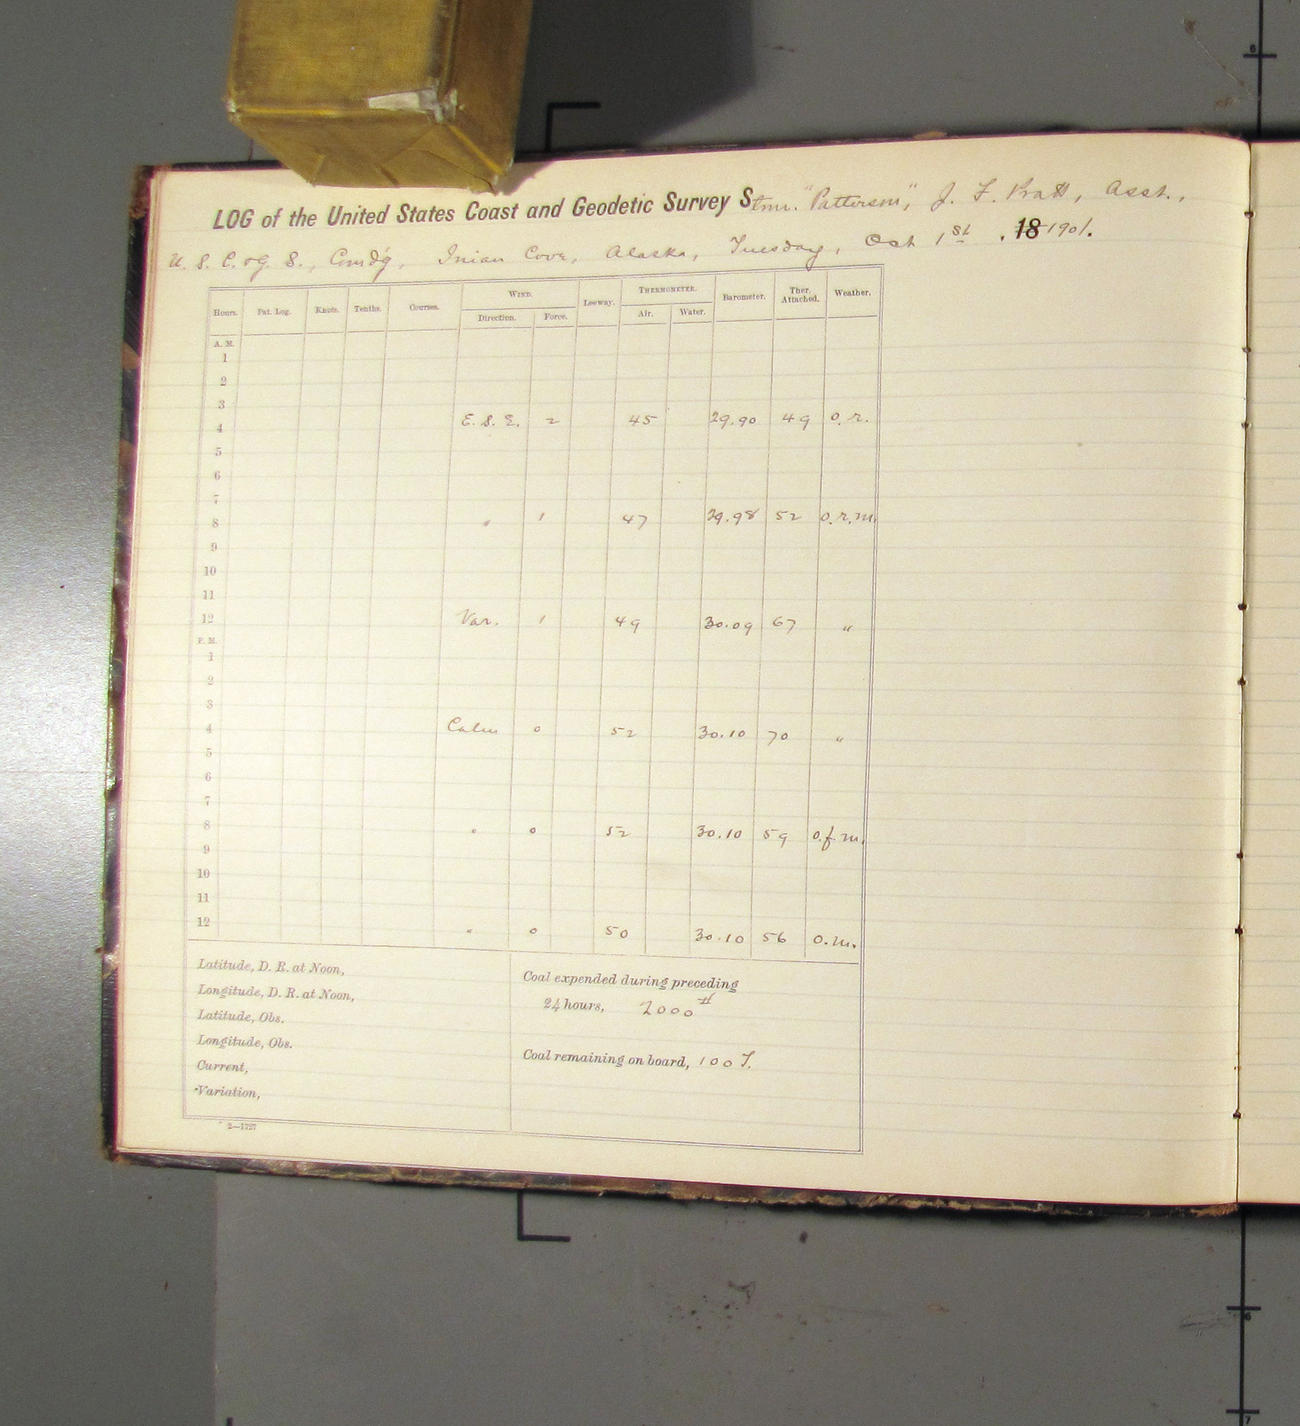 LOG of the United States Coast and Geodetic Survey Stmr. "Patterson", J. F. Pratt, Asst.,
U. S. C. & G. S., Comd'g, Inian Cove, Alaska, Tuesday, Oct 1st . 18 1901.
Hours. Pat. Log. Knots. Tenths. Courses. WIND. Leeway. THERMOMETER. Barometer. Ther. Attached. Weather.
Direction. Force. Air. Water.
A. M.
1
2
3
4 E. S. E. 2 45 29.90 49 o. r.
5
6
7
8 " 1 47 29.98 52 o. r. m.
9
10
11
12 Var. 1 49 30.09 67 "
P. M.
1
2
3
4 Calm 0 52 30.10 70 "
5
6
7
8 " 0 52 30.10 59 o. f. m.
9
10
11
12 " 0 50 30.10 56 o. m.
Latitude, D. R. at Noon,
Longitude, D. R. at Noon,
Latitude, Obs.
Longitude, Obs.
Current,
Variation,
Coal expended during preceding
24 hours, 2000 #
Coal remaining on board, 100 T.
2—1727
6
6
7